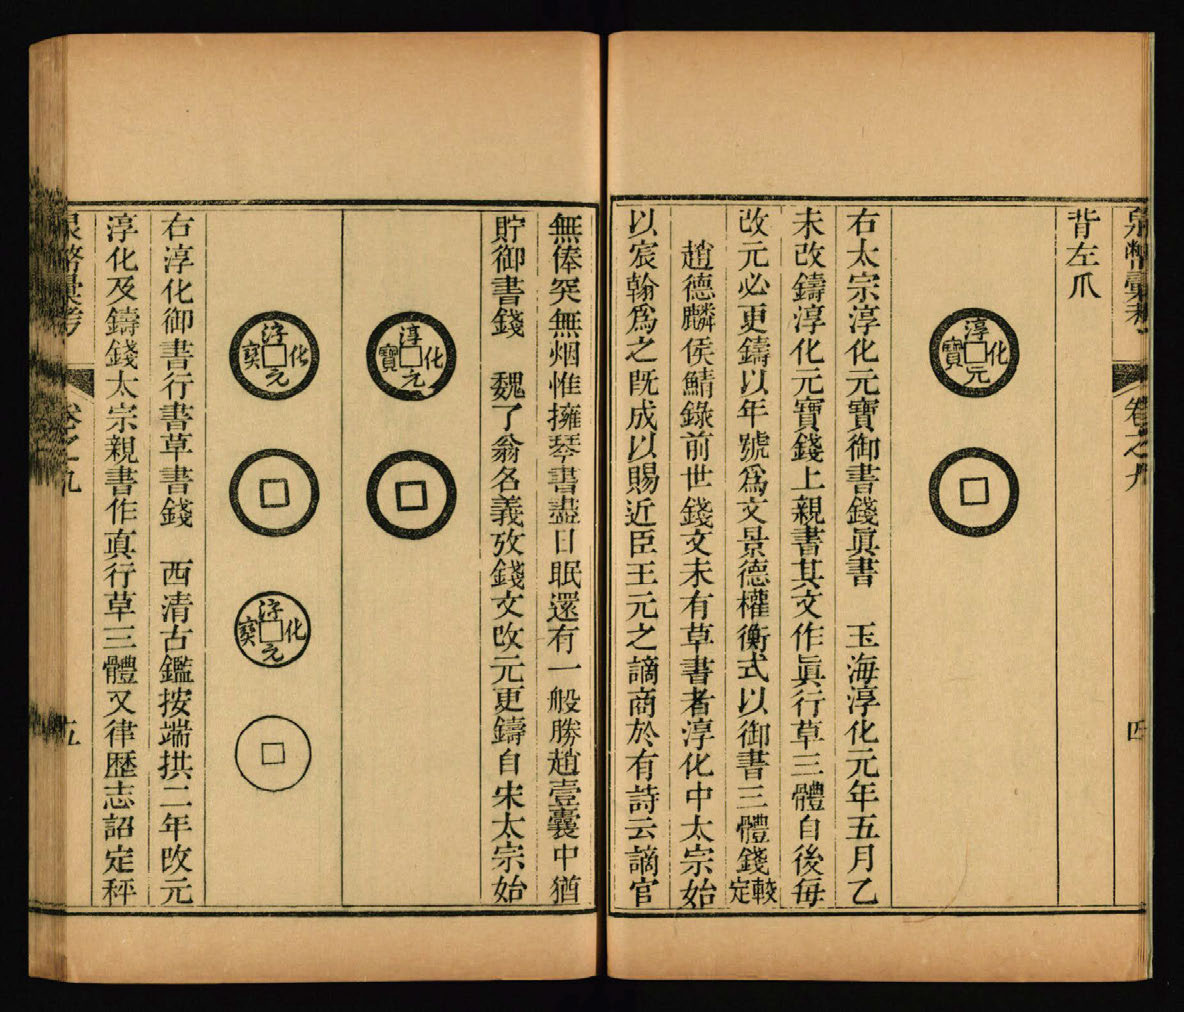 泉幣彙考 卷之九 四
背左爪
淳化元寶
右太宗淳化元寶御書錢眞書 玉海淳化元年五月乙
未改鑄淳化元寶錢上親書其文作眞行草三體自後每
改元必更鑄以年號爲文景德權衡式以御書三體錢較定
趙德麟侯鯖錄前世錢文未有草書者淳化中太宗始
以宸翰爲之旣成以賜近臣王元之謫商於有詩云謫官
無俸突無烟惟擁琴書盡日眠還有一般勝趙壹囊中猶
貯御書錢 魏了翁名義攷錢文改元更鑄自宋太宗始
淳化元寶
淳化元寶
淳化元寶
右淳化御書行書草書錢 西清古鑑按端拱二年改元
淳化及鑄錢太宗親書作真行草三體又律歴志詔定秤
泉幣彙考 卷之九 五